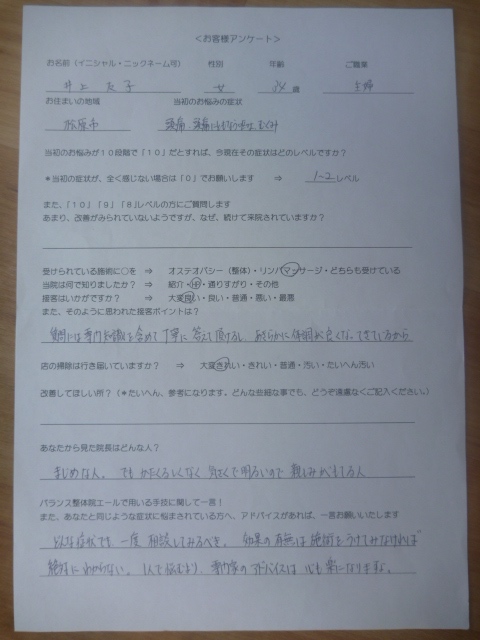 <お客様アンケート>
お名前(イニシャル・ニックネーム可) 性別 年齢 ご職業
井上 友子 女 24歳 主婦
お住まいの地域 当初のお悩みの症状
松原市 頭痛、頭痛にともなう吐気、むくみ
当初のお悩みが10段階で「10」だとすれば、今現在その症状はどのレベルですか?
*当初の症状が、全く感じない場合は「0」でお願いします ⇒ 1~2レベル
また、「10」「9」「8」レベルの方にご質問します
あまり、改善がみられていないようですが、なぜ、続けて来院されていますか?
受けられている施術に○を ⇒ オステオパシー(整体)・リンパマッサージ・どちらも受けている
当院は何で知りましたか? ⇒ 紹介・HP・通りすがり・その他
接客はいかがですか? ⇒ 大変良い・良い・普通・悪い・最悪
また、そのように思われた接客ポイントは?
質問には専門知識も含めて丁寧に答えて頂けるし、あきらかに体調が良くなってきているから
店の掃除は行き届いていますか? ⇒ 大変きれい・きれい・普通・汚い・たいへん汚い
改善してほしい所?(*たいへん、参考になります。どんな些細な事でも、どうぞ遠慮なくご記入ください。)
あなたから見た院長はどんな人?
まじめな人。でもかたくるしくなく気さくで明るいので親しみがもてる人
バランス整体院エールで用いる手技に関して一言!
また、あなたと同じような症状に悩まされている方へ、アドバイスがあれば、一言お願いいたします
どんな症状でも、一度相談してみるべき。効果の有無は施術をうけてみなければ
絶対にわからない。1人で悩むより、専門家のアドバイスは心も楽になりますよ。